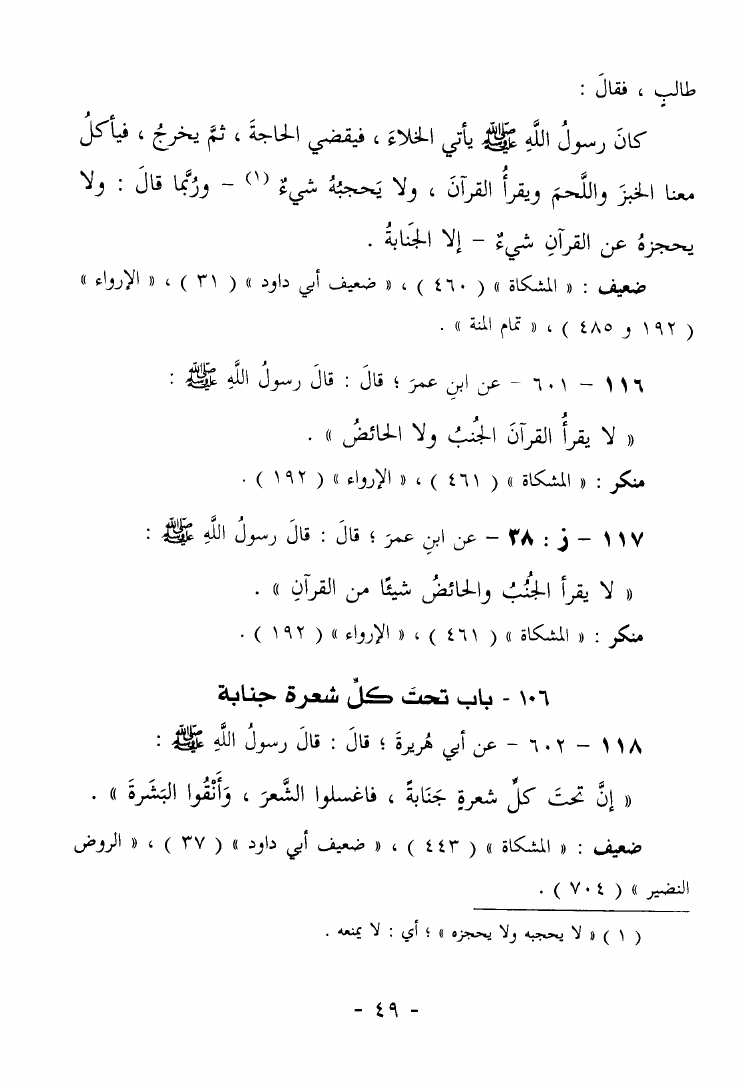 طالبٍ ، فقالَ :
كانَ رسولُ اللَّهِ ﷺ يأتي الخلاءَ ، فيقضي الحاجةَ ، ثمَّ يخرجُ ، فيأكلُ
معنا الخبزَ واللَّحمَ ويقرأُ القرآنَ ، ولا يَحجبُهُ شيءٌ (١) – ورُبَّما قالَ : ولا
يحجزهُ عن القرآنِ شيءٌ – إلا الجَنابةُ .
ضعيف : « المشكاة » ( ٤٦٠ ) ، « ضعيف أبي داود » ( ٣١ ) ، « الإرواء »
( ١٩٢ و ٤٨٥ ) ، « تمام المنة » .
١١٦ – ٦٠١ - عن ابنِ عمرَ ؛ قالَ : قالَ رسولُ اللَّهِ ﷺ :
« لا يقرأُ القرآنَ الجُنبُ ولا الحائضُ » .
منكر : « المشكاة » ( ٤٦١ ) ، « الإرواء » ( ١٩٢ ) .
١١٧ – ز : ٣٨ – عن ابنِ عمرَ ؛ قالَ : قالَ رسولُ اللَّهِ ﷺ :
« لا يقرأ الجُنُبُ والحائضُ شيئًا من القرآنِ » .
منكر : « المشكاة » ( ٤٦١ ) ، « الإرواء » ( ١٩٢ ) .
١٠٦ - باب تحتَ كلِّ شعرة جنابة
١١٨ – ٦٠٢ - عن أبي هُريرةَ ؛ قالَ : قالَ رسولُ اللَّهِ ﷺ :
« إنَّ تحتَ كلِّ شعرةٍ جَنَابةً ، فاغسلوا الشَّعرَ ، وَأَنْقُوا البَشَرةَ » .
ضعيف : « المشكاة » ( ٤٤٣ ) ، « ضعيف أبي داود » ( ٣٧ ) ، « الروض
النضير » ( ٧٠٤ ) .
( ١ ) « لا يحجبه ولا يحجزه » ؛ أي : لا يمنعه .
- ٤٩ -